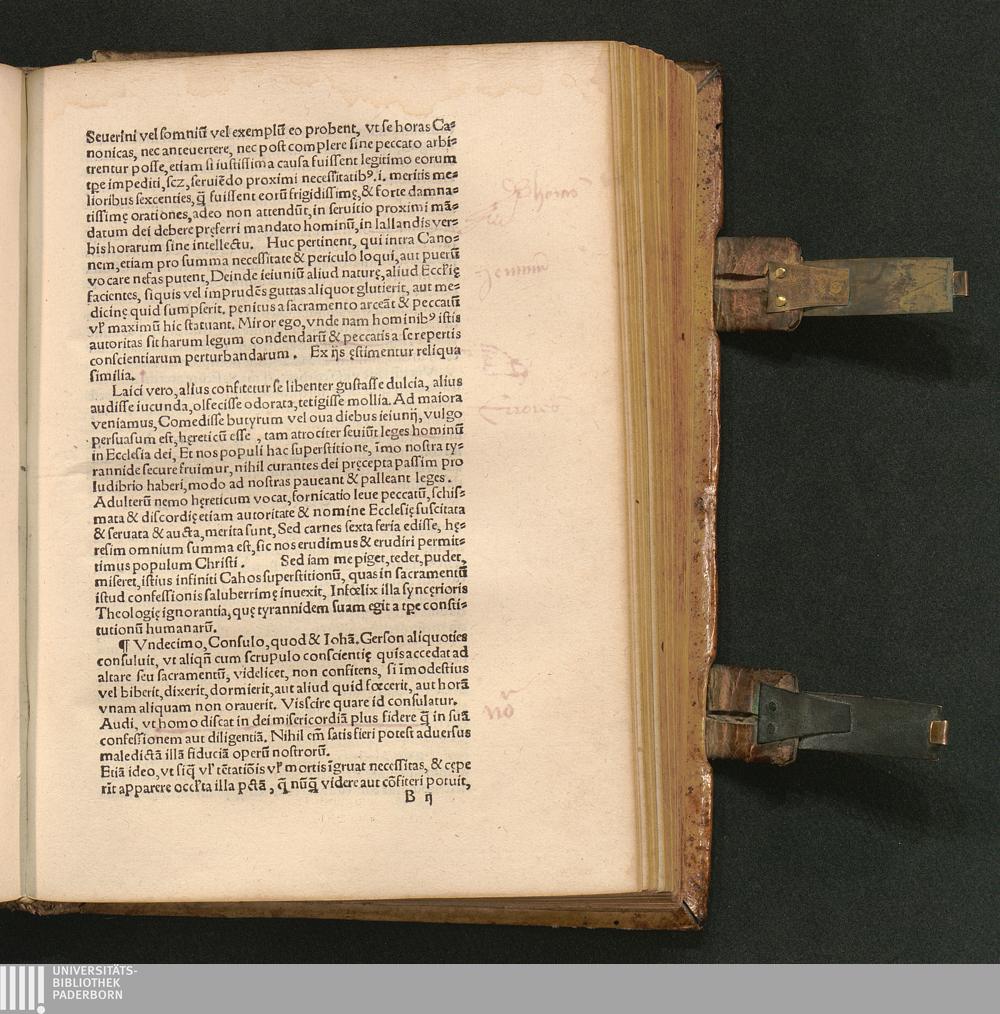 Seuerini vel somniū vel exemplū eo probent, vt se horas Ca⸗
nonicas, nec anteuertere, nec post complere sine peccato arbi⸗
trentur posse, etiam si iustissima causa fuissent legitimo eorum
tꝑe impediti, scz, seruiēdo proximi necessitatibꝰ .i. meritis me⸗
lioribus sexcenties, q̄ fuissent eorū frigidissimę, & forte damna⸗
tissimę orationes, adeo non attendūt, in seruitio proximi mā⸗
datum dei debere pręferri mandato hominū, in lallandis ver⸗
bis horarum sine intellectu. Huc pertinent, qui intra Cano⸗
nem, etiam pro summa necessitate & periculo loqui, aut puerū
vocare nefas putent, Deinde ieiuniū aliud naturę, aliud Ecclię
facientes, si quis vel imprudēs guttas aliquot glutierit, aut me⸗
dicinę quid sumpserit, penitus a sacramento arceāt & peccatū
vl’ maximū hic statuant. Miror ego, vnde nam hominibꝰ istis
autoritas sit harum legum condendarū & peccatis a se repertis
conscientiarum perturbandarum. Ex ijs ęstimentur reliqua
similia.
Laici vero, alius confitetur se libenter gustasse dulcia, alius
audisse iucunda, olfecisse odorata, tetigisse mollia. Ad maiora
veniamus, Comedisse butyrum vel oua diebus ieiunij, vulgo
persuasum est, hęreticū esse, tam atrociter seuiūt leges hominū
in Ecclesia dei, Et nos populi hac superstitione, īmo nostra ty⸗
rannide secure fruimur, nihil curantes dei pręcepta passim pro
ludibrio haberi, modo ad nostras paueant & palleant leges.
Adulterū nemo hęreticum vocat, fornicatio leue peccatū, schis⸗
mata & discordię etiam autoritate & nomine Ecclesię suscitata
& seruata & aucta, merita sunt, Sed carnes sexta feria edisse, hę⸗
resim omnium summa est, sic nos erudimus & erudiri permit⸗
timus populum Christi. Sed iam me piget, tedet, pudet,
miseret, istius infiniti Cahos superstitionū, quas in sacramentū
istud confessionis saluberrimę inuexit, Infœlix illa syncęrioris
Theologię ignorantia, quę tyrannidem suam egit a tꝑe consti⸗
tutionū humanarū.
¶ Vndecimo, Consulo, quod & Iohā. Gerson aliquoties
consuluit, vt aliqn̄ cum scrupulo conscientię quis accedat ad
altare seu sacramentū, videlicet, non confitens, si īmodestius
vel biberit, dixerit, dormierit, aut aliud quid fœcerit, aut horā
vnam aliquam non orauerit. Vis scire quare id consulatur.
Audi, vt homo discat in dei misericordiā plus fidere q̄ in suā
confessionem aut diligentiā. Nihil em̄ satis fieri potest aduersus
maledictā illā fiduciā operū nostrorū.
Etiā ideo, vt siq̄ vl’ tētatiōis vl’ mortis īgruat necessitas, & cępe
rīt apparere occl’ta illa pctā, q̄ nūq̄ videre aut cōfiteri potuit,
B ij
Errores
UNIVERSITÄTS-
BIBLIOTHEK
PADERBORN